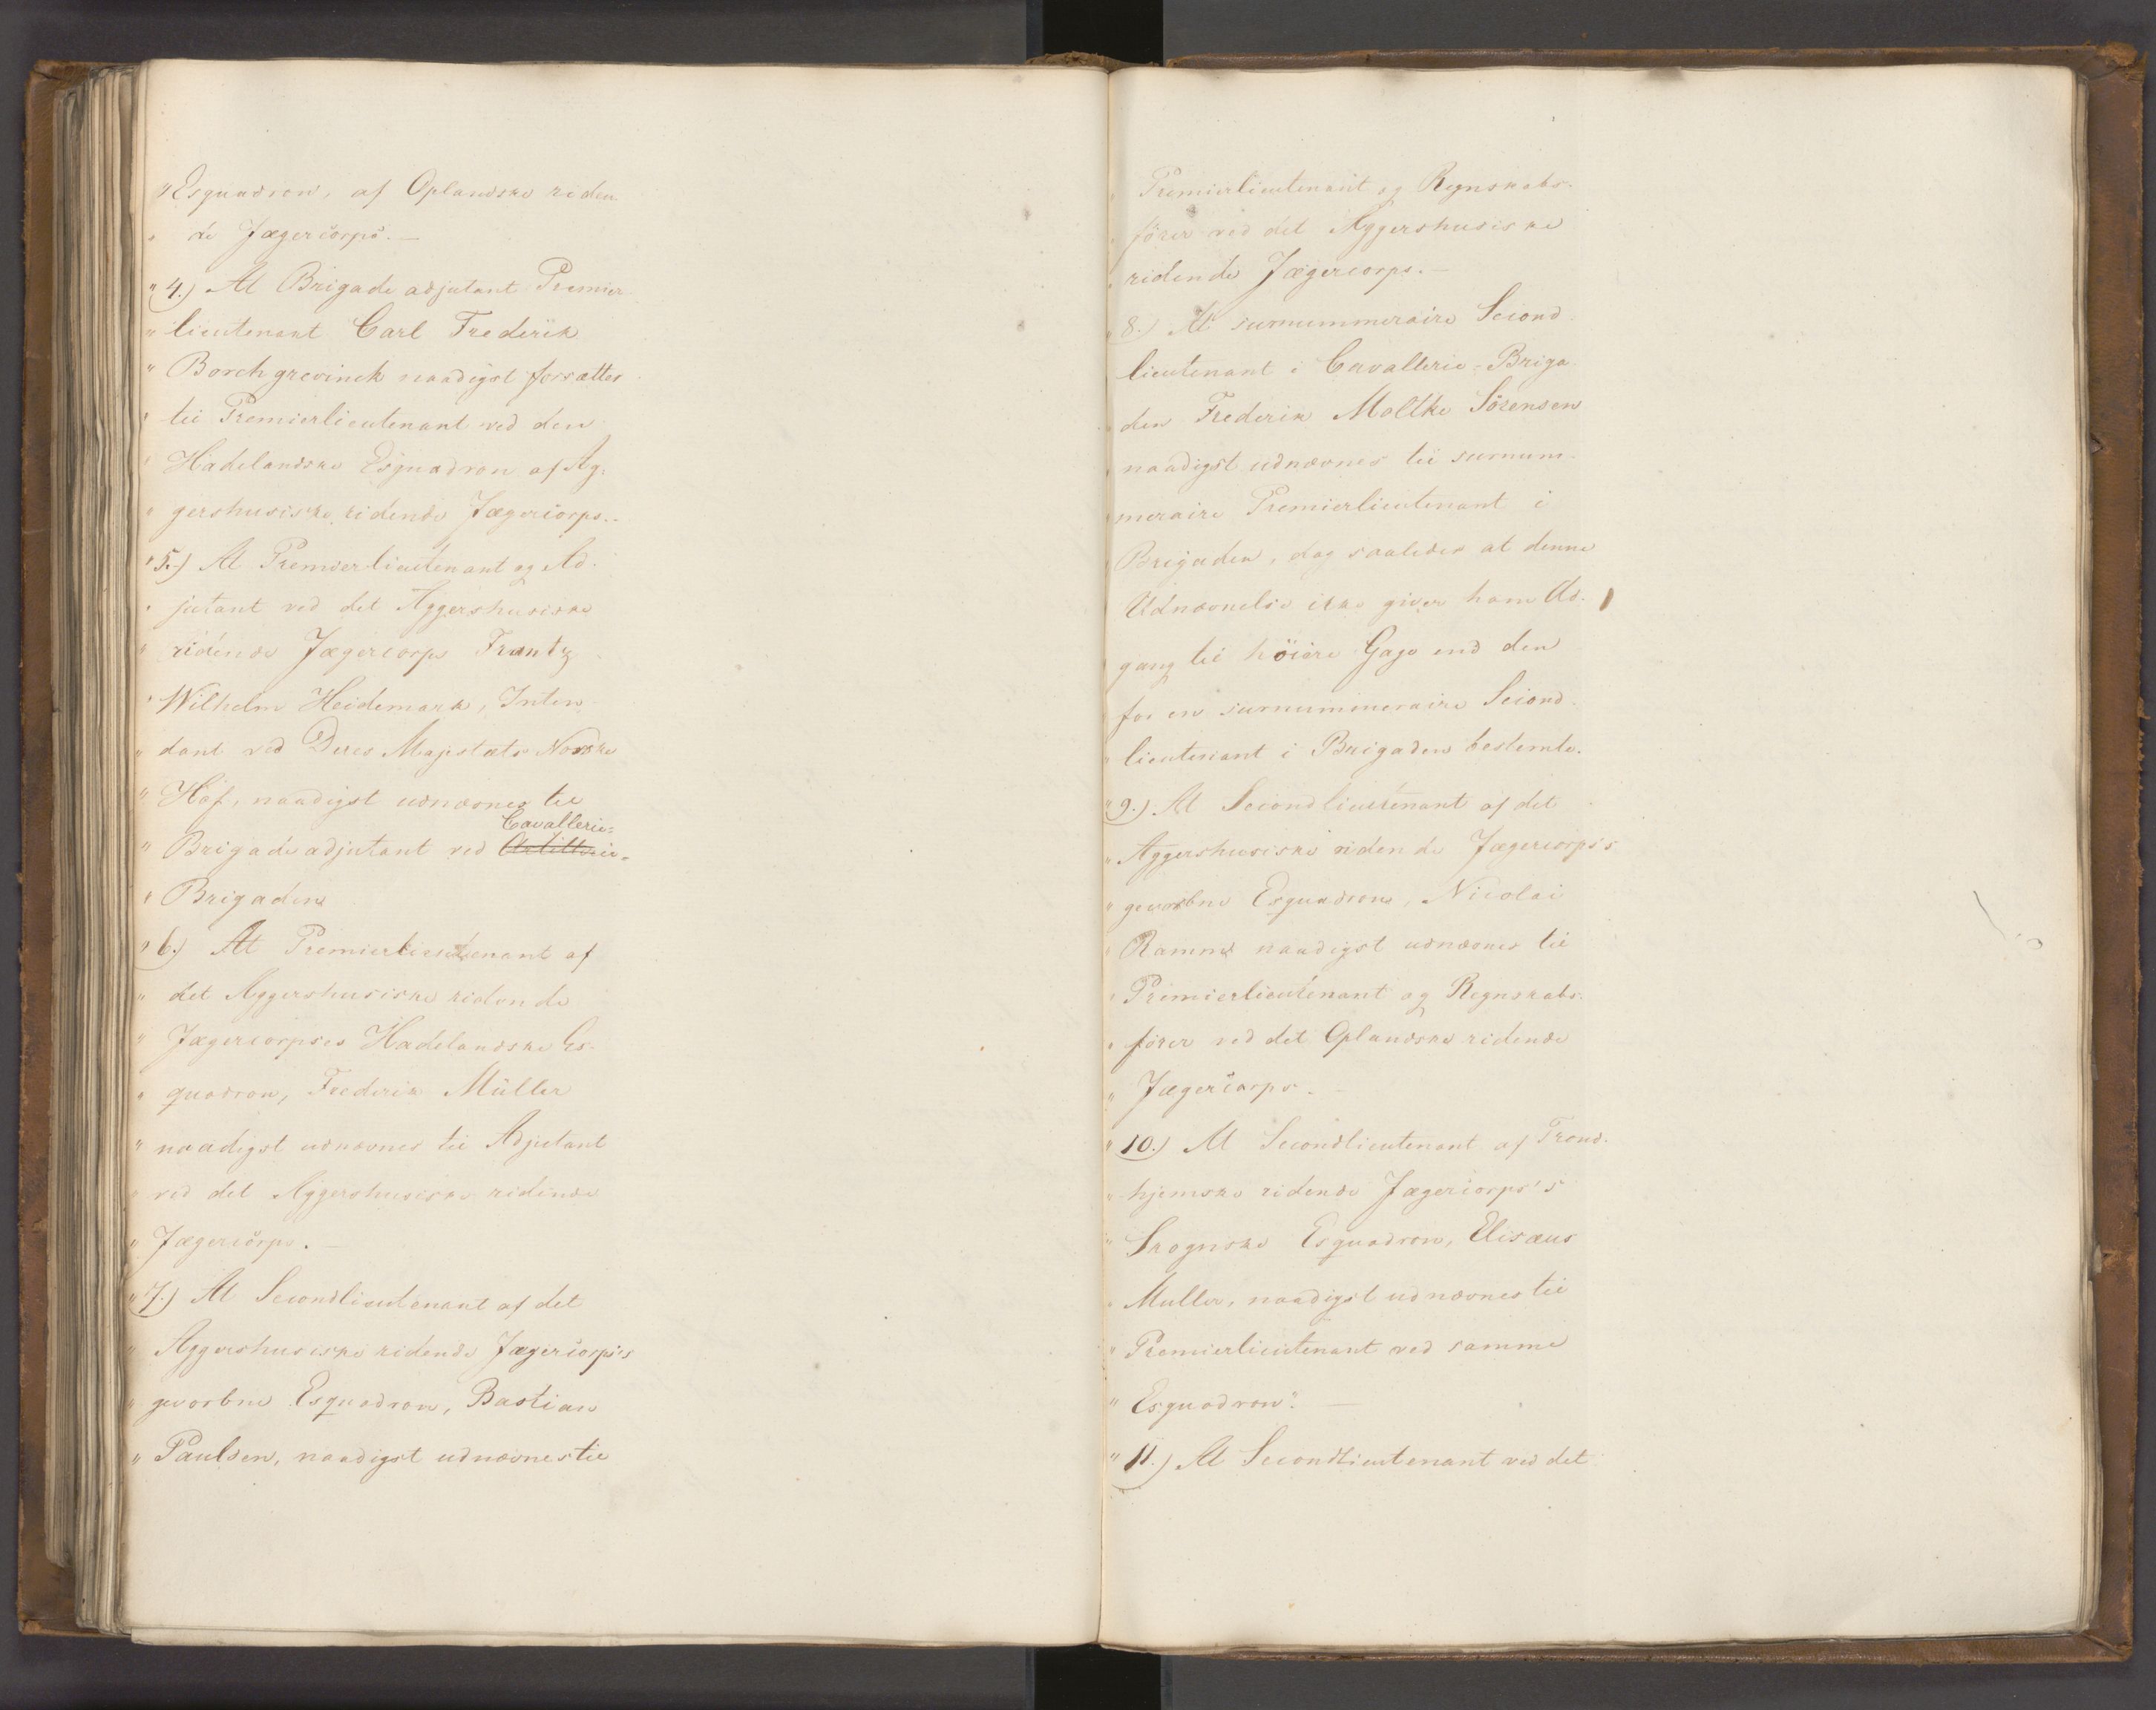 "Esquadron, af Oplandske riden
" de Jægercorps. —
"4.) At Brigadeadjutant Premier
" lieutenant Carl Frederik
" Borchgrevinck naadigst forsættes
" til Premierlieutenant ved den
" Hadelandske Esquadron af Ag-
" gershusiske ridende Jægercorps. -
"5.) At Premierlieutenant og Ad-
" jutant ved det Aggershusiske
" ridende Jægercorps Frantz
" Wilhelm Heidemark, Inten-
" dant ved Deres Majestæts Norske
" Hof, naadigst udnævnes til
Cavallerie=
" Brigadeadjutant ved Artillerie=
" Brigaden
"6.) At Premierlieutenant af
" det Aggershusiske ridende
" Jægercorpses Hadelandske Es-
" quadron, Frederik Müller
" naadigst udnævnes til Adjutant
" ved det Aggershusiske ridende
" Jægercorps. —
"7.) At Secondlieutenant af det
" Aggershusiske ridende Jægercorps's
" gevorbne Esquadron, Bastian
" Paulsen, naadigst udnævnes til
" Premierlieutenant og Regnskabs-
" förer ved det Aggershusiske
" ridende Jægercorps. —
"8.) At surnummeraire Second-
" lieutenant i Cavallerie=Briga-
" den Frederik Moltke Sörensen
" naadigst udnævnes til surnum-
" meraire Premierlieutenant i
" Brigaden, dog saaledes at denne
" Udnævnelse ikke giver ham Ad-
" gang til höiere Gage end den
" for en surnummeraire Second-
" lieutenant i Brigaden bestemte.
"9.) At Secondlieutenant af det
" Aggershusiske ridende Jægercorps's
" gevorbne Esquadron, Nicolai
" Ramm naadigst udnævnes til
" Premierlieutenant og Regnskabs-
" förer ved det Oplandske ridende
" Jægercorps. —
"10.) At Secondlieutenant af Trond-
" hjemske ridende Jægercorps's
" Skognske Esquadron, Elisæus
" Muller, naadigst udnævnes til
" Premierlieutenant ved samme
" Esquadron". —
"11.) At Secondlieutenant ved det